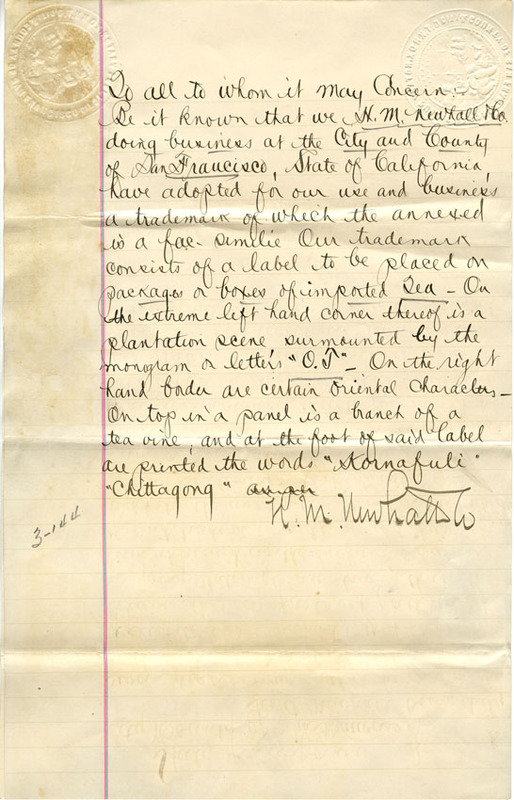 To all to whom it may Concern:-
Be it known that we H. M. Newhall & Co.
doing business at the City and County
of San Francisco, State of California,
have adopted for our use and business
a trademark of which the annexed
is a fac-similie Our trademark
consists of a label to be placed on
packages or boxes of imported Tea - On
the extreme left hand corner thereof is a
plantation scene surmounted by the
monogram or letter's "O.T" - On the right
hand border are certain oriental characters -
On top in a panel is a branch of a
tea vine, and at the foot of said label
are printed the words "Kornafuli"
"Chittagong"
H. M. Newhall & Co
3-144